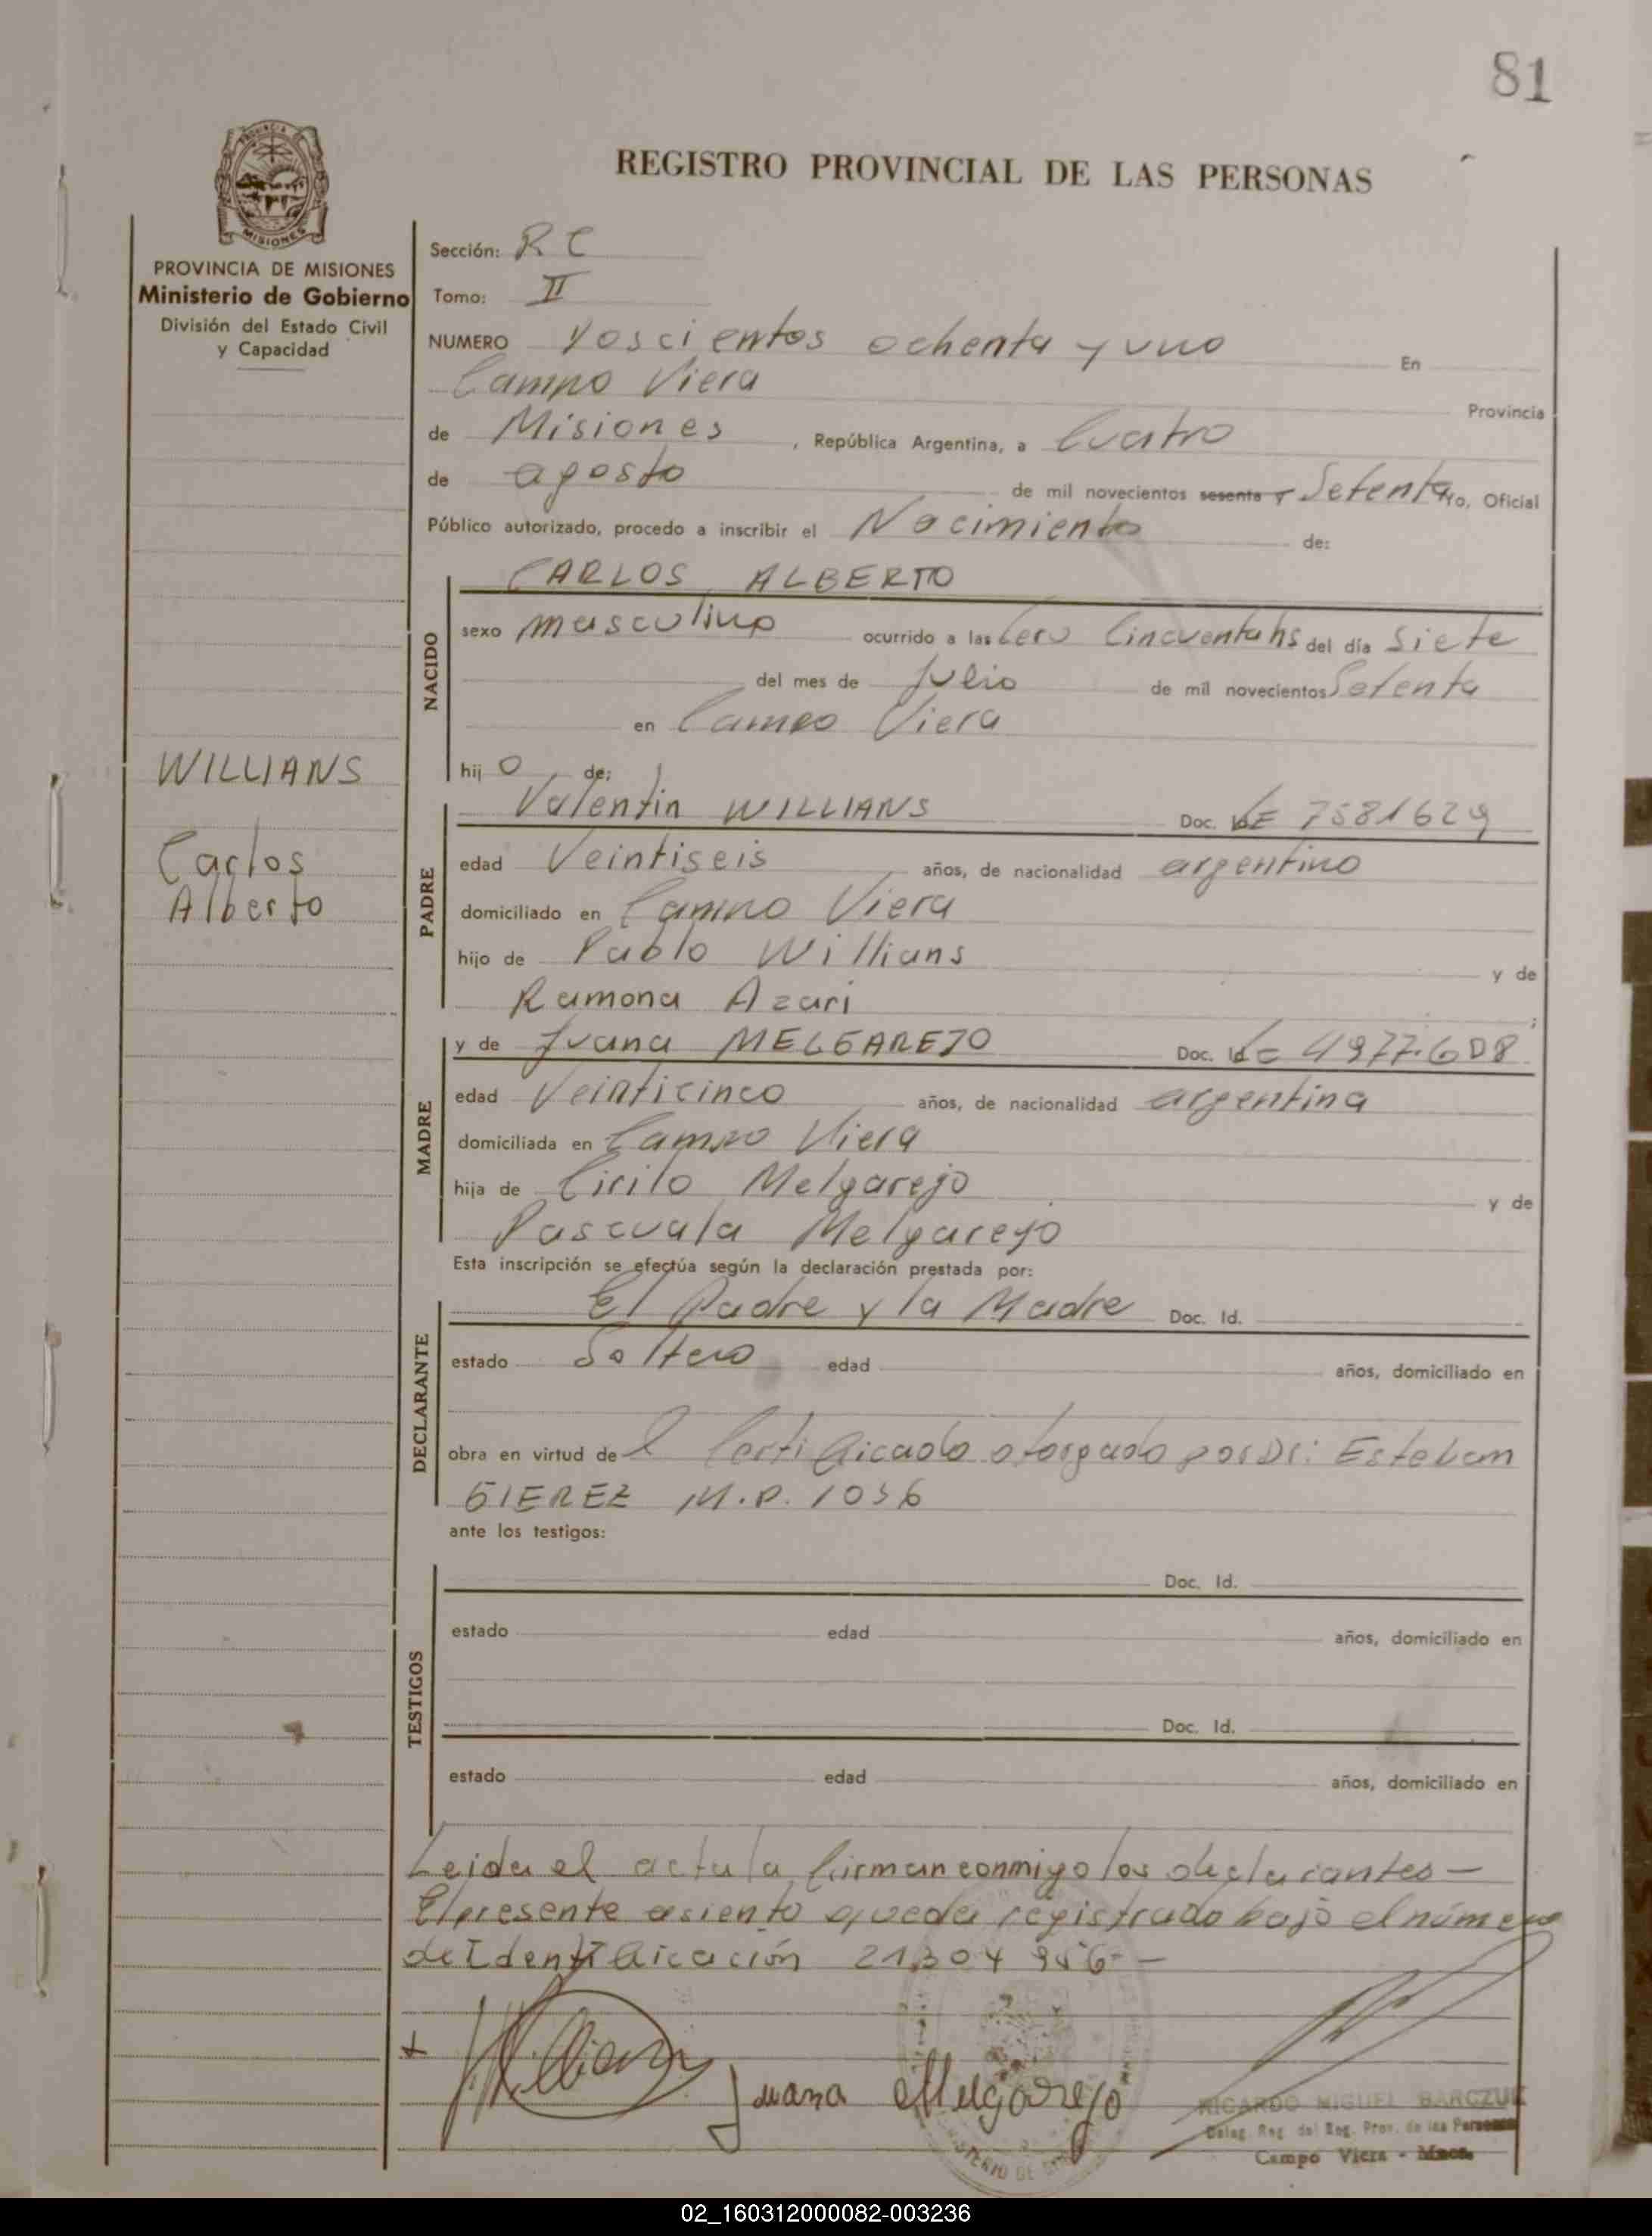 81
REGISTRO PROVINCIAL DE LAS PERSONAS
MISIONES
PROVINCIA DE MISIONES
Ministerio de Gobierno
División del Estado Civil
y Capacidad
Sección: R C
Tomo: II
NUMERO Doscientos ochenta y uno En
Campo Viera Provincia
de Misiones, República Argentina, a Cuatro
de agosto de mil novecientos sesenta y Setenta Yo, Oficial
Público autorizado, procedo a inscribir el Nacimiento de:
CARLOS ALBERTO
NACIDO
sexo masculino ocurrido a las Cero Cincuenta hs del día Siete
del mes de Julio de mil novecientos Setenta
en Campo Viera
hijo de:
WILLIANS
Carlos
Alberto
PADRE
Valentin WILLIANS Doc. LE 7581629
edad Veintiseis años, de nacionalidad argentino
domiciliado en Campo Viera
hijo de Pablo Willians y de
Ramona Azari
MADRE
y de Juana MELGAREJO Doc. Id LC 4977.608
edad Veinticinco años, de nacionalidad argentina
domiciliada en Campo Viera
hija de Cirilo Melgarejo y de
Pascuala Melgarejo
Esta inscripción se efectúa según la declaración prestada por:
DECLARANTE
El Padre y la Madre Doc. Id.
estado Soltero edad años, domiciliado en
obra en virtud del Certificado otorgado por Dr: Esteban
GIEREZ M.P. 1036
ante los testigos:
TESTIGOS
Doc. Id.
estado edad años, domiciliado en
Doc. Id.
estado edad años, domiciliado en
Leida el acta la firman conmigo los declarantes —
El presente asiento queda registrado bajo el número
de Identificación 21.304 956 —
Willians
Juana Melgarejo
RICARDO MIGUEL BARCZUK
Deleg. Reg. del Reg. Prov. de las Personas
Campo Viera - Mnes.
02_160312000082-003236